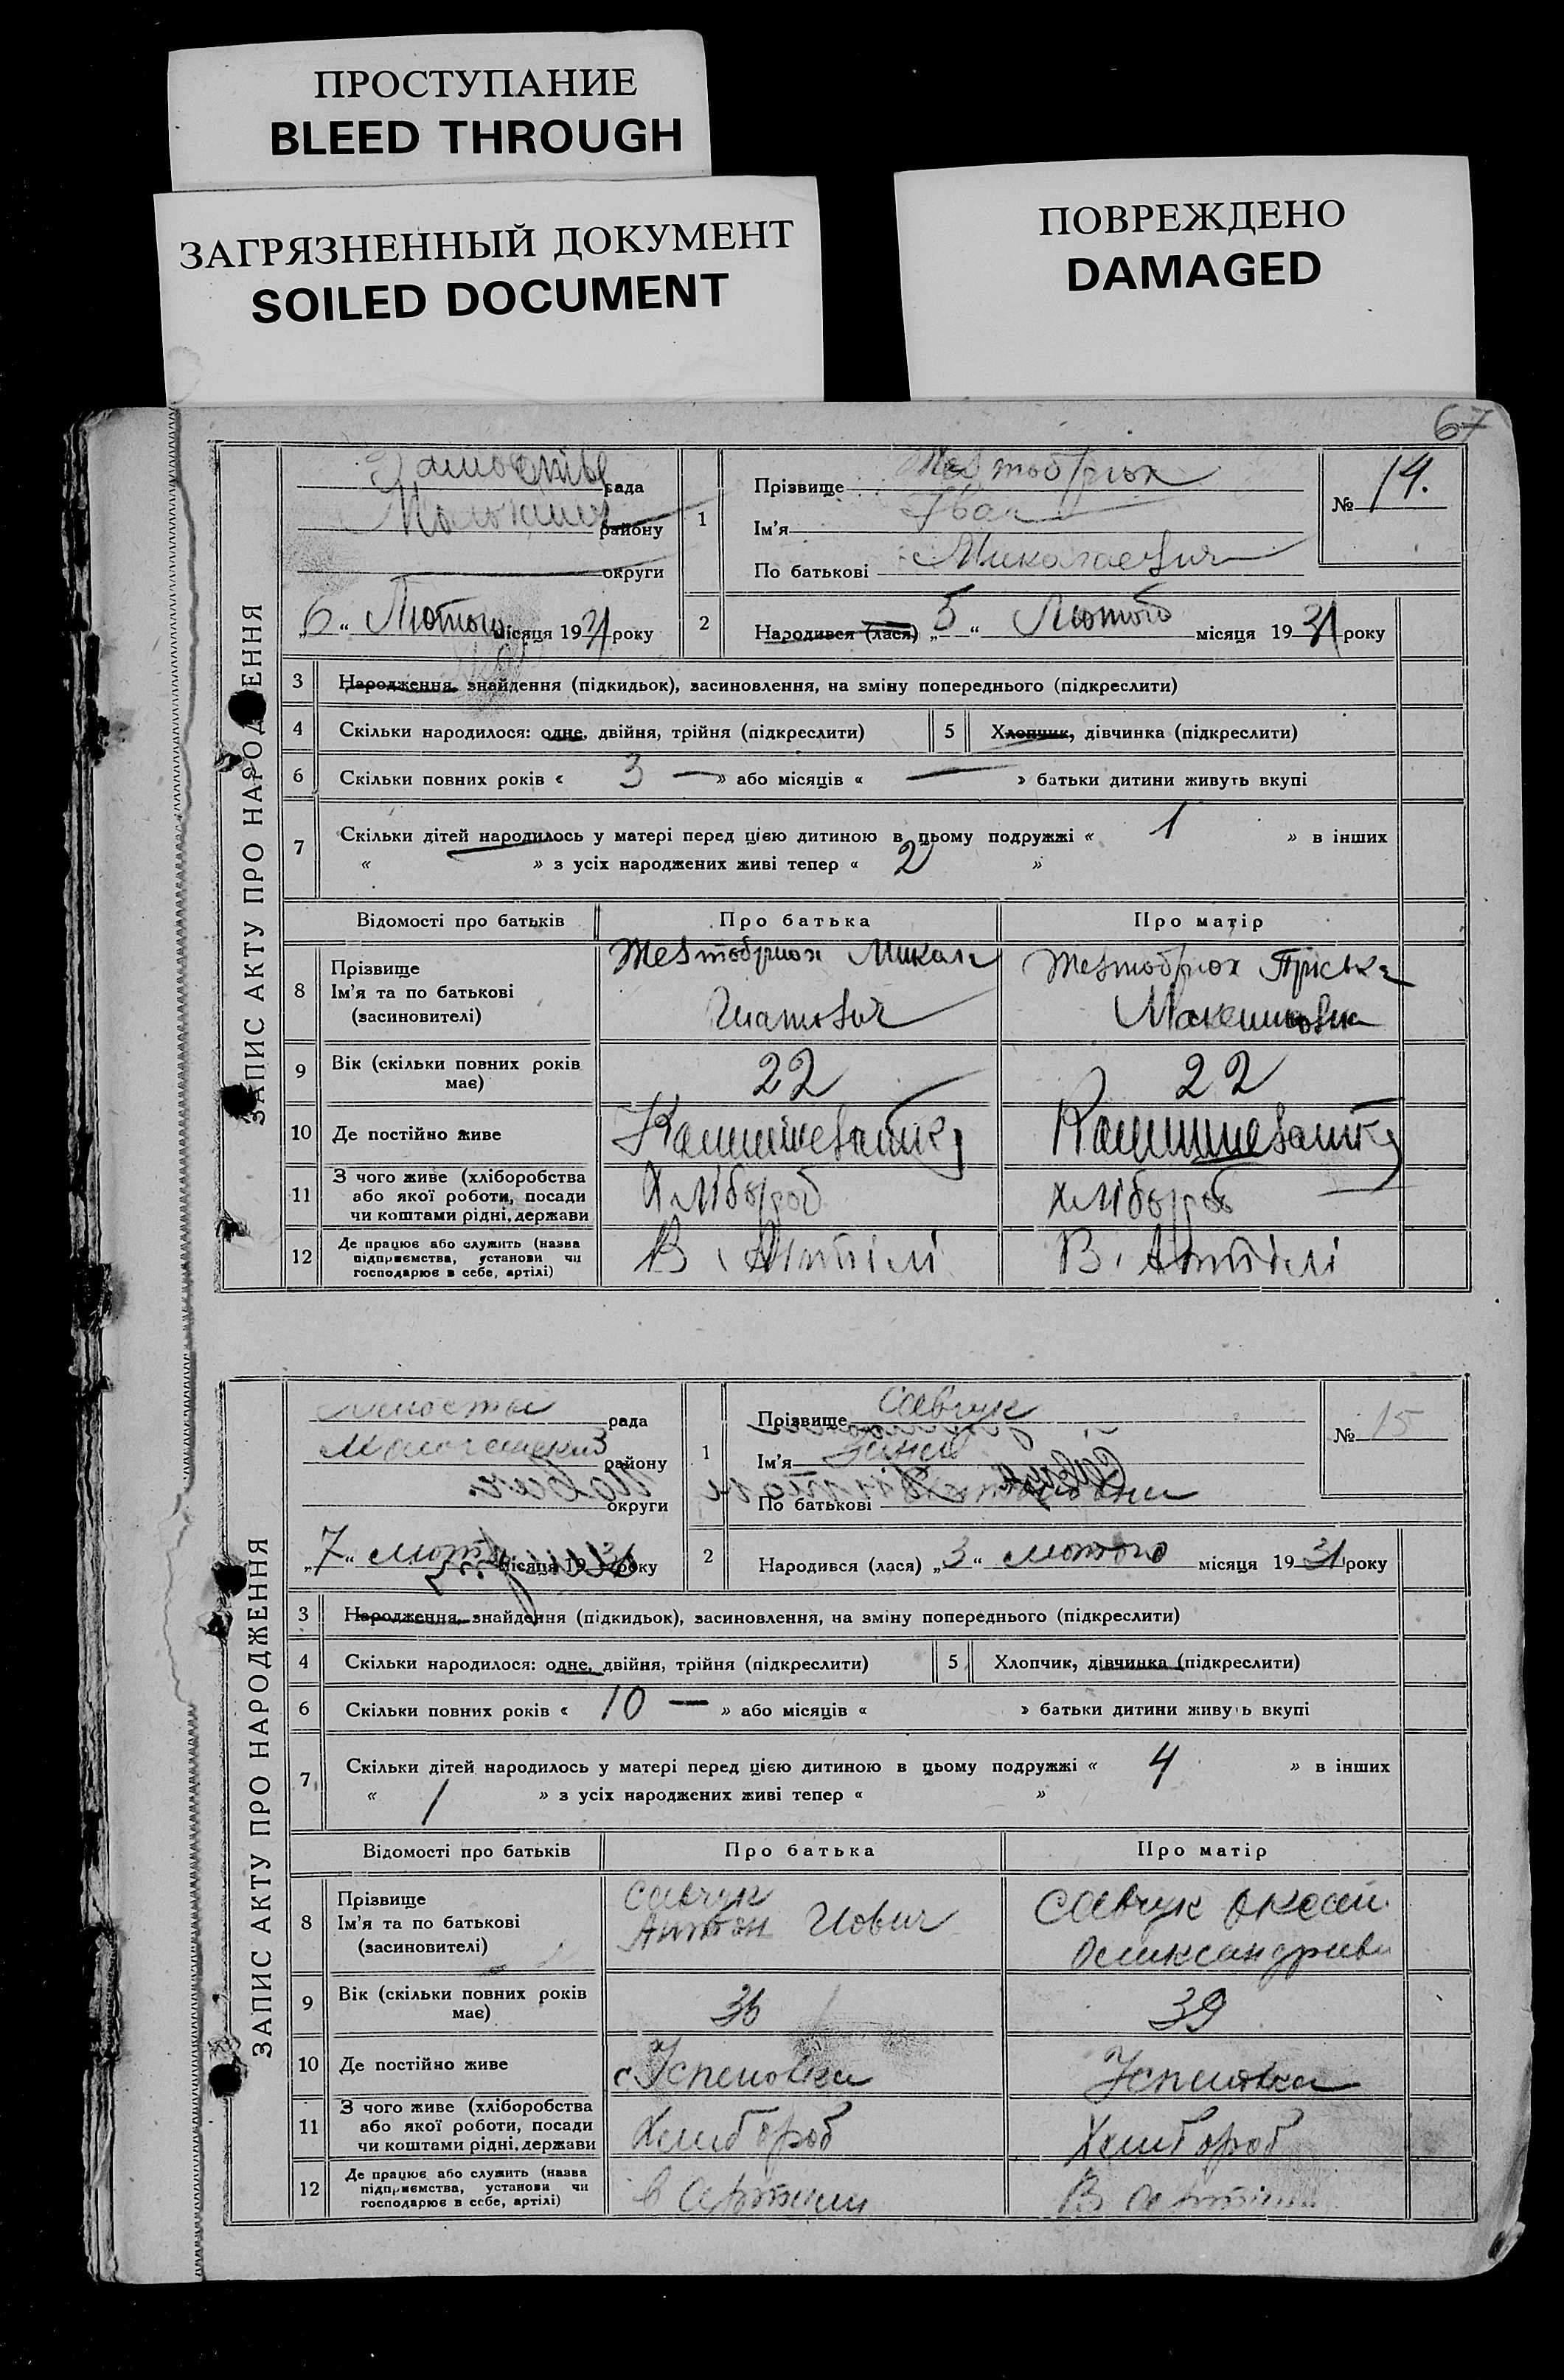 ПРОСТУПАНИЕ
BLEED THROUGH
ЗАГРЯЗНЕННЫЙ ДОКУМЕНТ
SOILED DOCUMENT
ПОВРЕЖДЕНО
DAMAGED
67
ЗАПИС АКТУ ПРО НАРОДЖЕННЯ
рада
району
округи
„6“ Лютого місяця 1931 року
1
Прізвище Жевтобрюх
Ім'я Іван
По батькові Миколаевич
№ 14.
2
Народився (лася) „5“ Лютого місяця 1931 року
3 Народження, знайдення (підкидьок), засиновлення, на зміну попереднього (підкреслити)
4 Скільки народилося: одне, двійня, трійня (підкреслити)
5 Хлопчик, дівчинка (підкреслити)
6 Скільки повних років « 3 — » або місяців « — » батьки дитини живуть вкупі
7 Скільки дітей народилось у матері перед цією дитиною в цьому подружжі « 1 » в інших
« » з усіх народжених живі тепер « 2 »
Відомості про батьків Про батька Про матір
8 Прізвище
Ім'я та по батькові
(засиновителі)
Жевтобрюх Микола
Жевтобрюх Пріська
9 Вік (скільки повних років має) 22 22
10 Де постійно живе
11 З чого живе (хліборобства
або якої роботи, посади
чи коштами рідні, держави
Хлібороб хлібороб
12 Де працює або служить (назва
підприємства, установи чи
господарює в себе, артілі)
В Артілі В Артілі
ЗАПИС АКТУ ПРО НАРОДЖЕННЯ
рада
району
округи
„7“ місяця 1931 року
1
Прізвище Савчук
Ім'я
По батькові
№ 15
2
Народився (лася) „3“ лютого місяця 1931 року
3 Народження, знайдення (підкидьок), засиновлення, на зміну попереднього (підкреслити)
4 Скільки народилося: одне, двійня, трійня (підкреслити)
5 Хлопчик, дівчинка (підкреслити)
6 Скільки повних років « 10 — » або місяців « » батьки дитини живуть вкупі
7 Скільки дітей народилось у матері перед цією дитиною в цьому подружжі « 4 » в інших
« 1 » з усіх народжених живі тепер « »
Відомості про батьків Про батька Про матір
8 Прізвище
Ім'я та по батькові
(засиновителі)
Савчук
Антон Иович
Савчук
9 Вік (скільки повних років має) 36 39
10 Де постійно живе с Успеновка Успеновка
11 З чого живе (хліборобства
або якої роботи, посади
чи коштами рідні, держави
Хлибороб Хлибороб
12 Де працює або служить (назва
підприємства, установи чи
господарює в себе, артілі)
в Артили В артіли